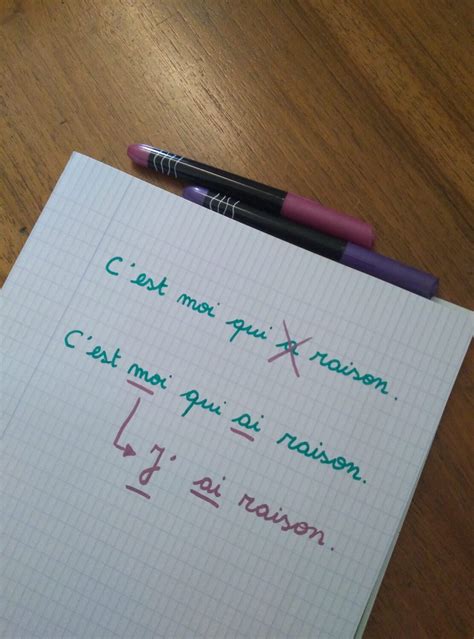 C'est moi qui a raison.
C'est moi qui ai raison.
J'ai raison.